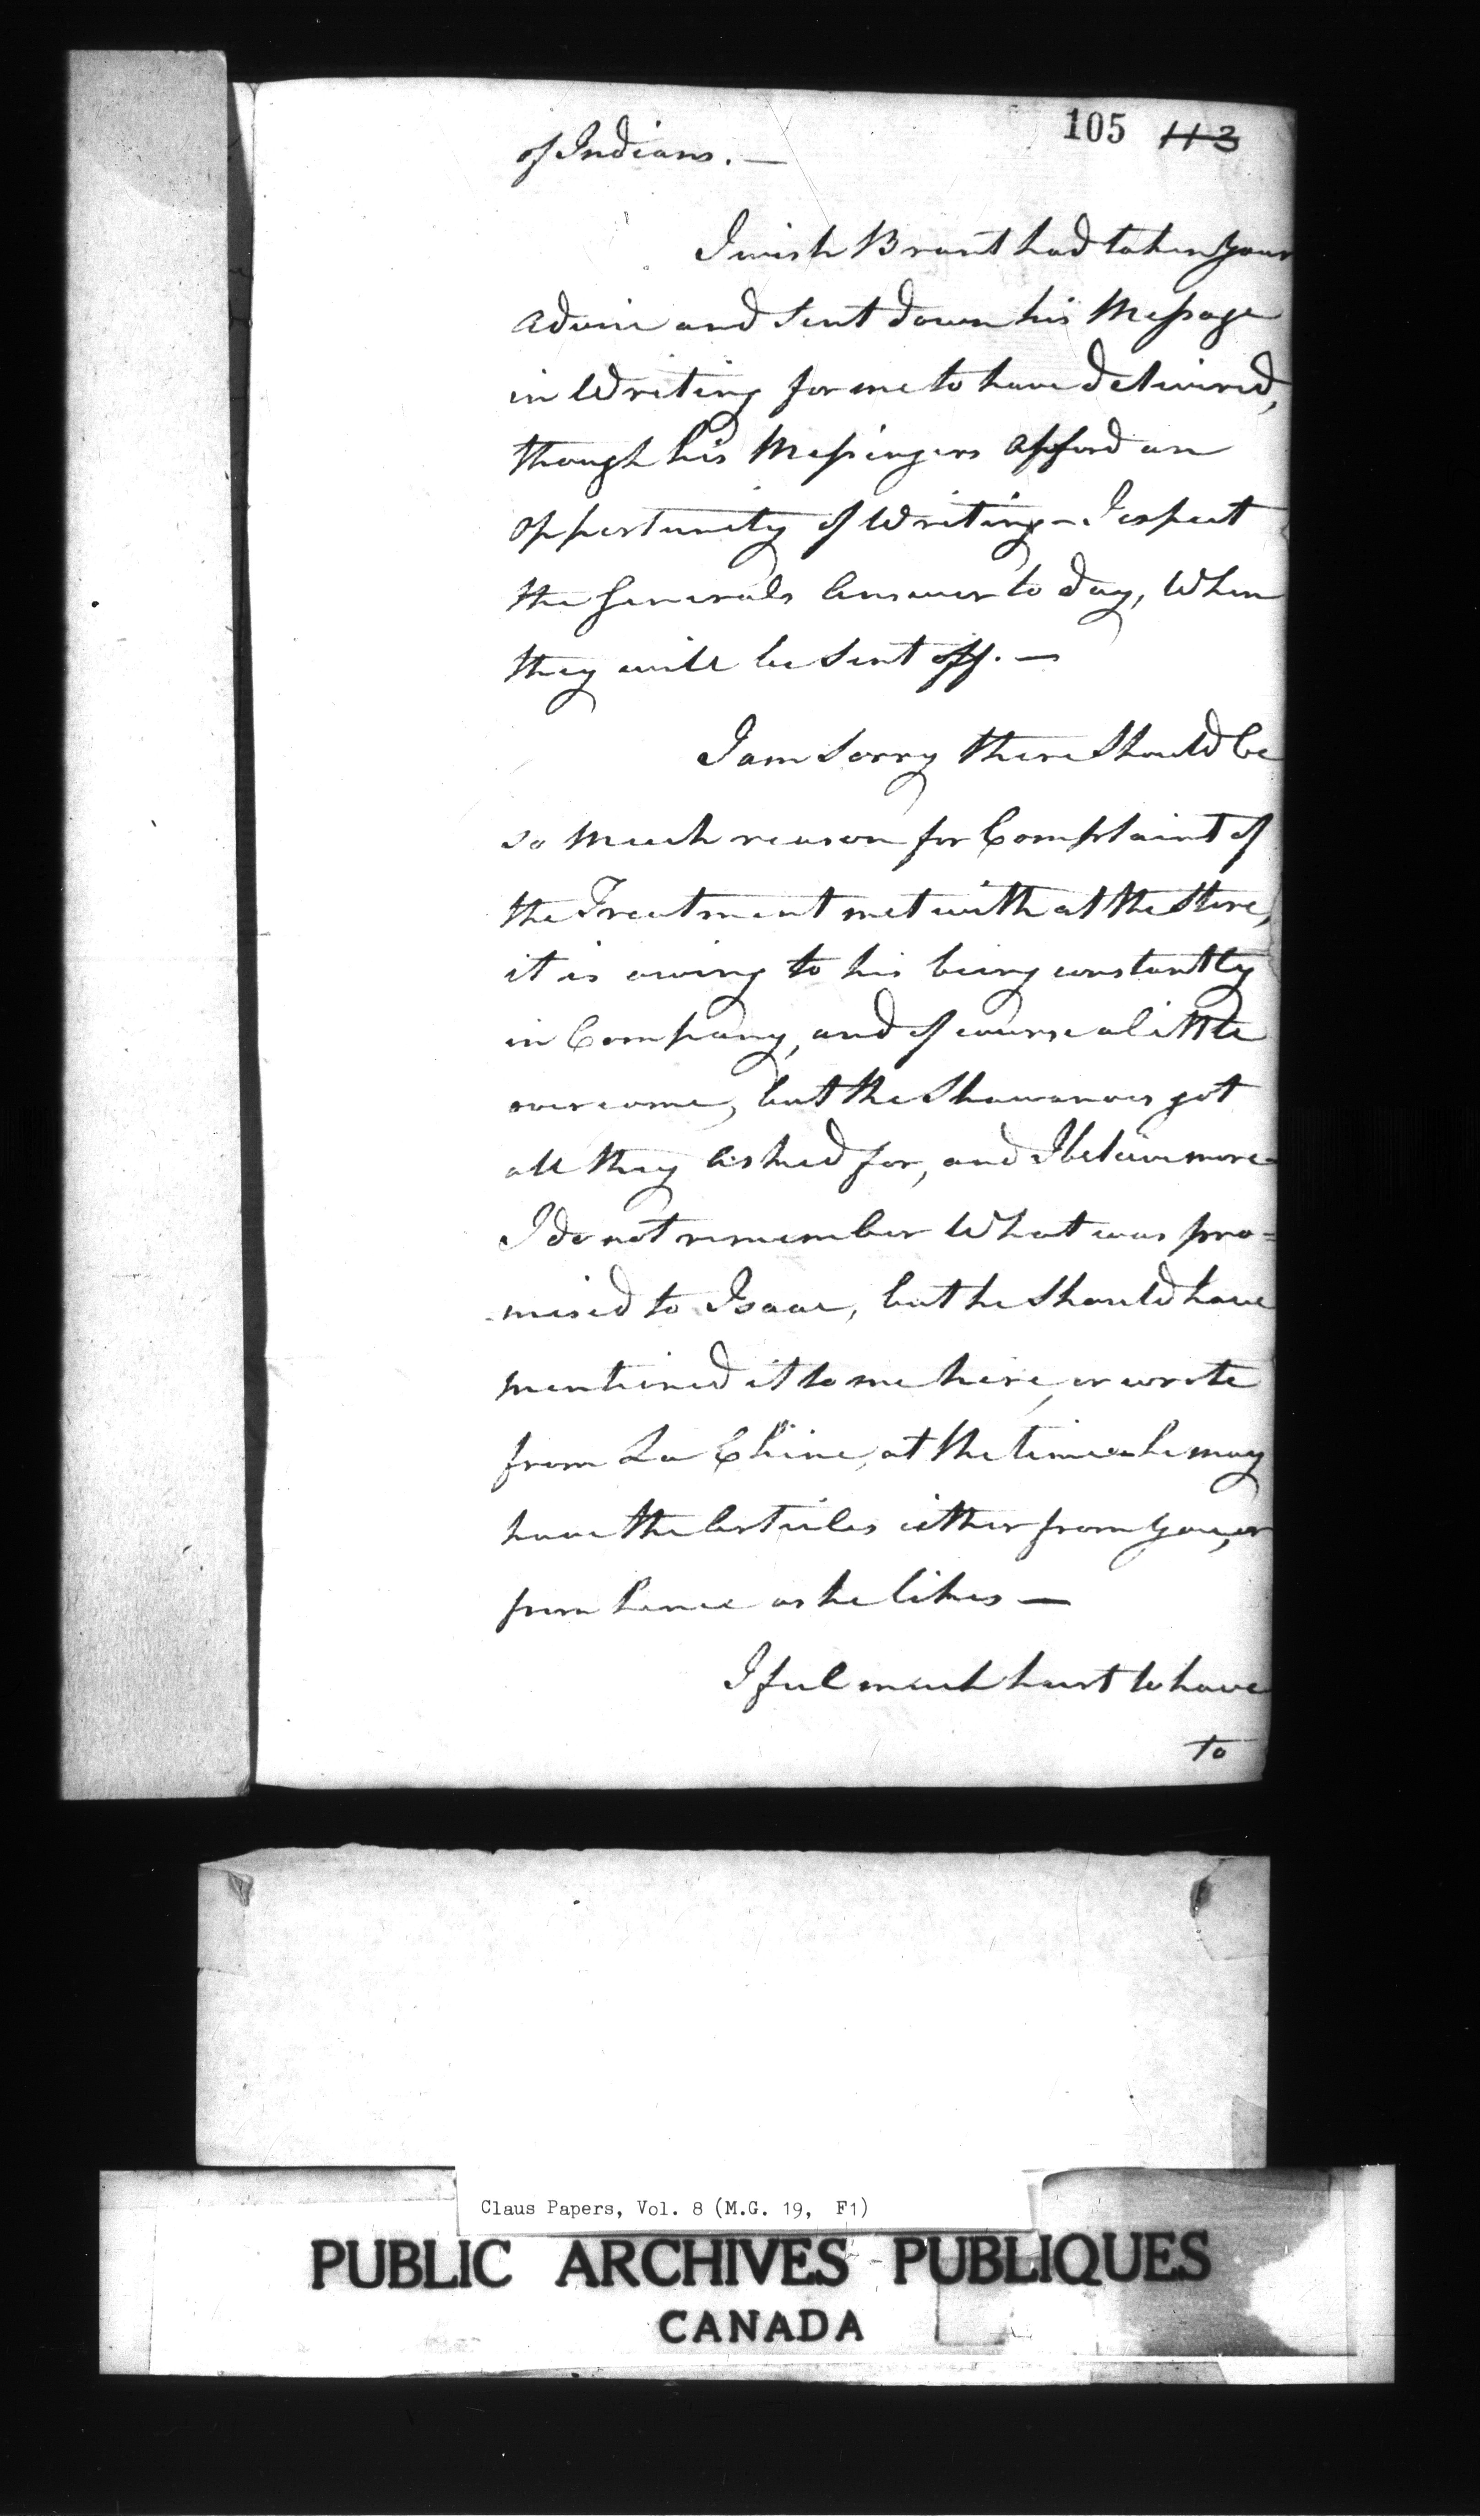 105 113
of Indians. —
I wish Brant had taken your
advice and sent down his Message
in Writing for me to have delivered,
though his Messengers afford an
opportunity of Writing - I expect
the Generals Answer to day, When
they will be sent off. —
I am sorry there should be
so much reason for Complaint of
the Treatment met with at the Store,
it is owing to his being constantly
in Company, and of course a little
overcome, but the Shawanoes got
all they asked for, and I beleive more
I do not remember What was pro=
mised to Isaac, but he should have
mentioned it to me here, or wrote
from La Chine, at the time he may
have the Articles either from you, or
from hence as he likes —
I feel much hurt to have
to
Claus Papers, Vol. 8 (M.G. 19, F1)
PUBLIC ARCHIVES PUBLIQUES
CANADA